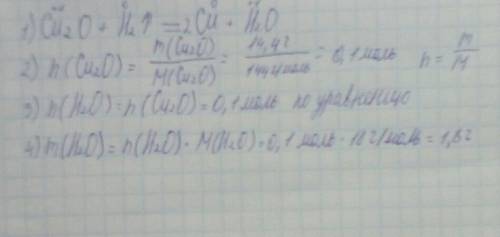 1) Cu₂O + H₂↑ = 2Cu + H₂O
2) n(Cu₂O) = m(Cu₂O)/M(Cu₂O) = 14,4г/144г/моль = 0,1 моль n = m/M
3) n(H₂O) = n(Cu₂O) = 0,1 моль по уравнению
4) m(H₂O) = n(H₂O) · M(H₂O) = 0,1 моль · 18г/моль = 1,8г